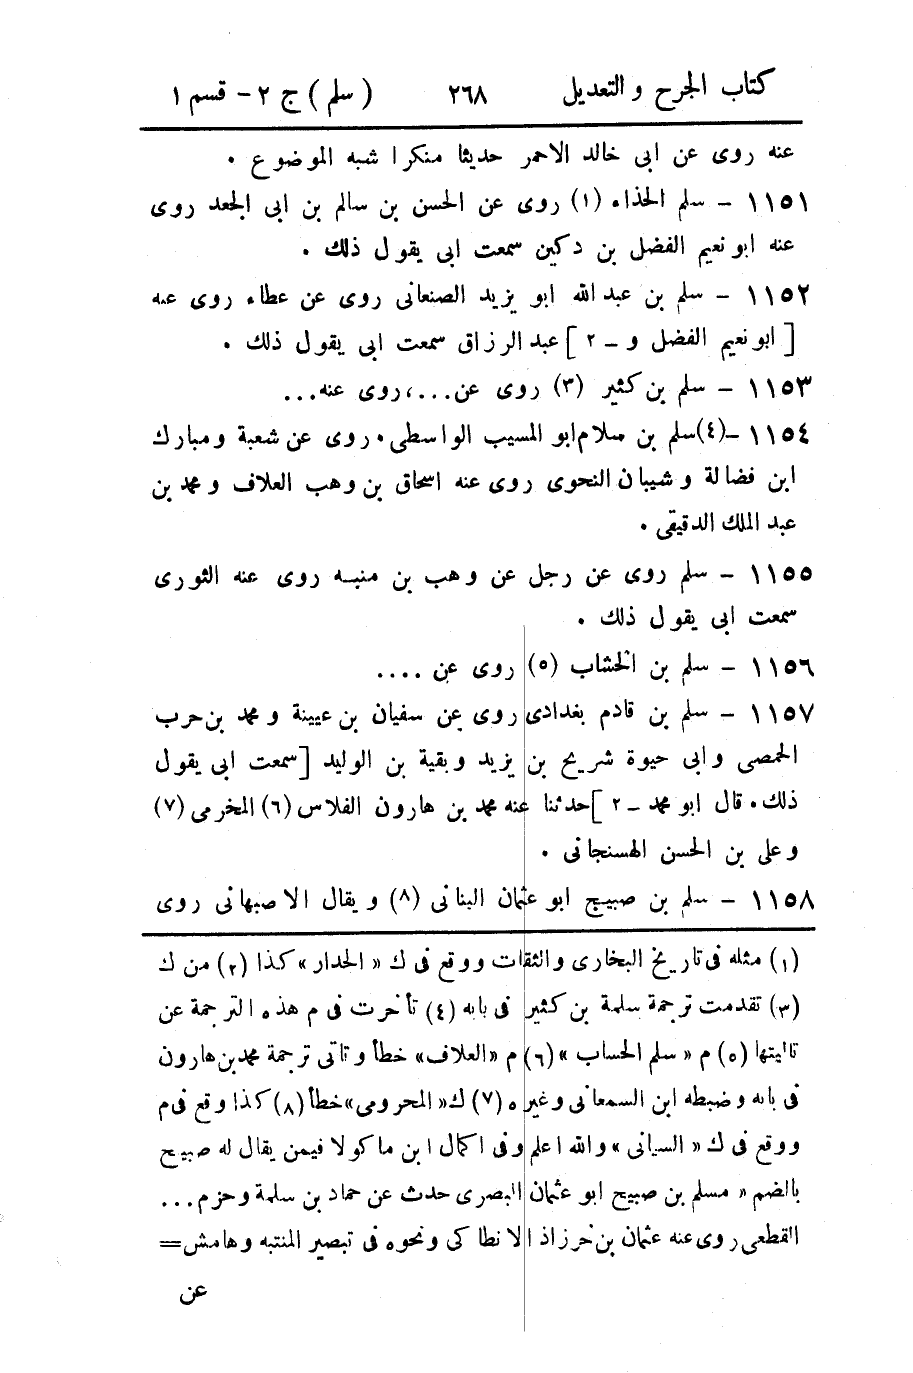 كتاب الجرح والتعديل ٢٦٨ (سلم) ج ٢ - قسم ١
عنه روى عن ابى خالد الاحمر حديثا منكرا شبه الموضوع .
١١٥١ - سلم الحذاء (١) روى عن الحسن بن سالم بن ابى الجعد روى
عنه ابو نعيم الفضل بن دكين سمعت ابى يقول ذلك .
١١٥٢ - سلم بن عبد الله ابو يزيد الصنعانى روى عن عطاء روى عنه
[ابو نعيم الفضل و - ٢] عبد الرزاق سمعت ابى يقول ذلك .
١١٥٣ - سلم بن كثير (٣) روى عن...، روى عنه...
١١٥٤ - (٤) سلم بن سلام ابو المسيب الواسطى . روى عن شعبة ومبارك
ابن فضالة وشيبان النحوى روى عنه اسحاق بن وهب العلاف ومحمد بن
عبد الملك الدقيقى .
١١٥٥ - سلم روى عن رجل عن وهب بن منبه روى عنه الثورى
سمعت ابى يقول ذلك .
١١٥٦ - سلم بن الخشاب (٥) روى عن ....
١١٥٧ - سلم بن قادم بغدادى روى عن سفيان بن عيينة ومحمد بن حرب
الحمصى وابى حيوة شريح بن يزيد وبقية بن الوليد [سمعت ابى يقول
ذلك . قال ابو محمد - ٢] حدثنا عنه محمد بن هارون الفلاس (٦) المخرمى (٧)
وعلى بن الحسن الهسنجانى .
١١٥٨ - سلم بن صبيح ابو عثمان البنانى (٨) ويقال الاصبهانى روى
(١) مثله فى تاريخ البخارى والثقات ووقع فى ك « الحدار » كذا (٢) من ك
(٣) تقدمت ترجمة سلمة بن كثير فى بابه (٤) تأخرت فى م هذه الترجمة عن
تاليتها (٥) م « سلم الحساب » (٦) م «العلاف» خطأ وتاتى ترجمة محمد بن هارون
فى بابه وضبطه ابن السمعانى وغيره (٧) ك« المحرومى» خطأ (٨) كذا وقع فى م
ووقع فى ك « السيانى » والله اعلم وفى اكمال ابن ماكولا فيمن يقال له صبيح
بالضم « مسلم بن صبيح ابو عثمان البصرى حدث عن حماد بن سلمة وحزم ...
القطعى روى عنه عثمان بن خرزاذ الانطاكى ونحوه فى تبصير المنتبه وهامش=
عن